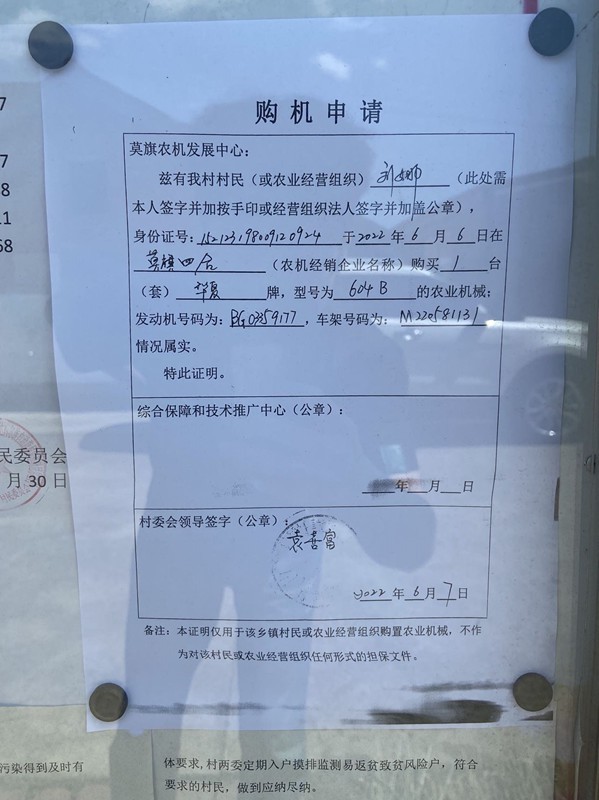 7
7
8
11
68
民委员会
月30日
购机申请
莫旗农机发展中心:
兹有我村村民(或农业经营组织) 刘娜 (此处需
本人签字并加按手印或经营组织法人签字并加盖公章),
身份证号: 152123198009120924 于2022年6月6日在
莫旗四合 (农机经销企业名称)购买 1 台
(套) 华夏 牌,型号为 604B 的农业机械;
发动机号码为: BG0359177,车架号码为: M220581131
情况属实。
特此证明。
综合保障和技术推广中心(公章):
年 月 日
村委会领导签字(公章):
袁喜富
2022年6月7日
备注:本证明仅用于该乡镇村民或农业经营组织购置农业机械,不作
为对该村民或农业经营组织任何形式的担保文件。
污染得到及时有
体要求,村两委定期入户摸排监测易返贫致贫风险户,符合
要求的村民,做到应纳尽纳。